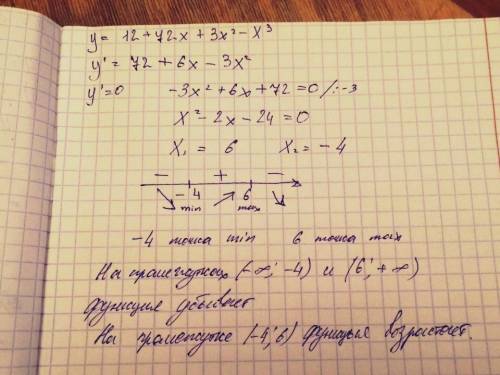 y = 12 + 72x + 3x² - x³
y' = 72 + 6x - 3x²
y' = 0 -3x² + 6x + 72 = 0 /:-3
x² - 2x - 24 = 0
x₁ = 6 x₂ = -4
- + -
-4 6
min max
-4 точка min 6 точка max
На промежутках (-∞; -4) и (6; +∞)
функция убывает
На промежутке (-4; 6) функция возрастает.